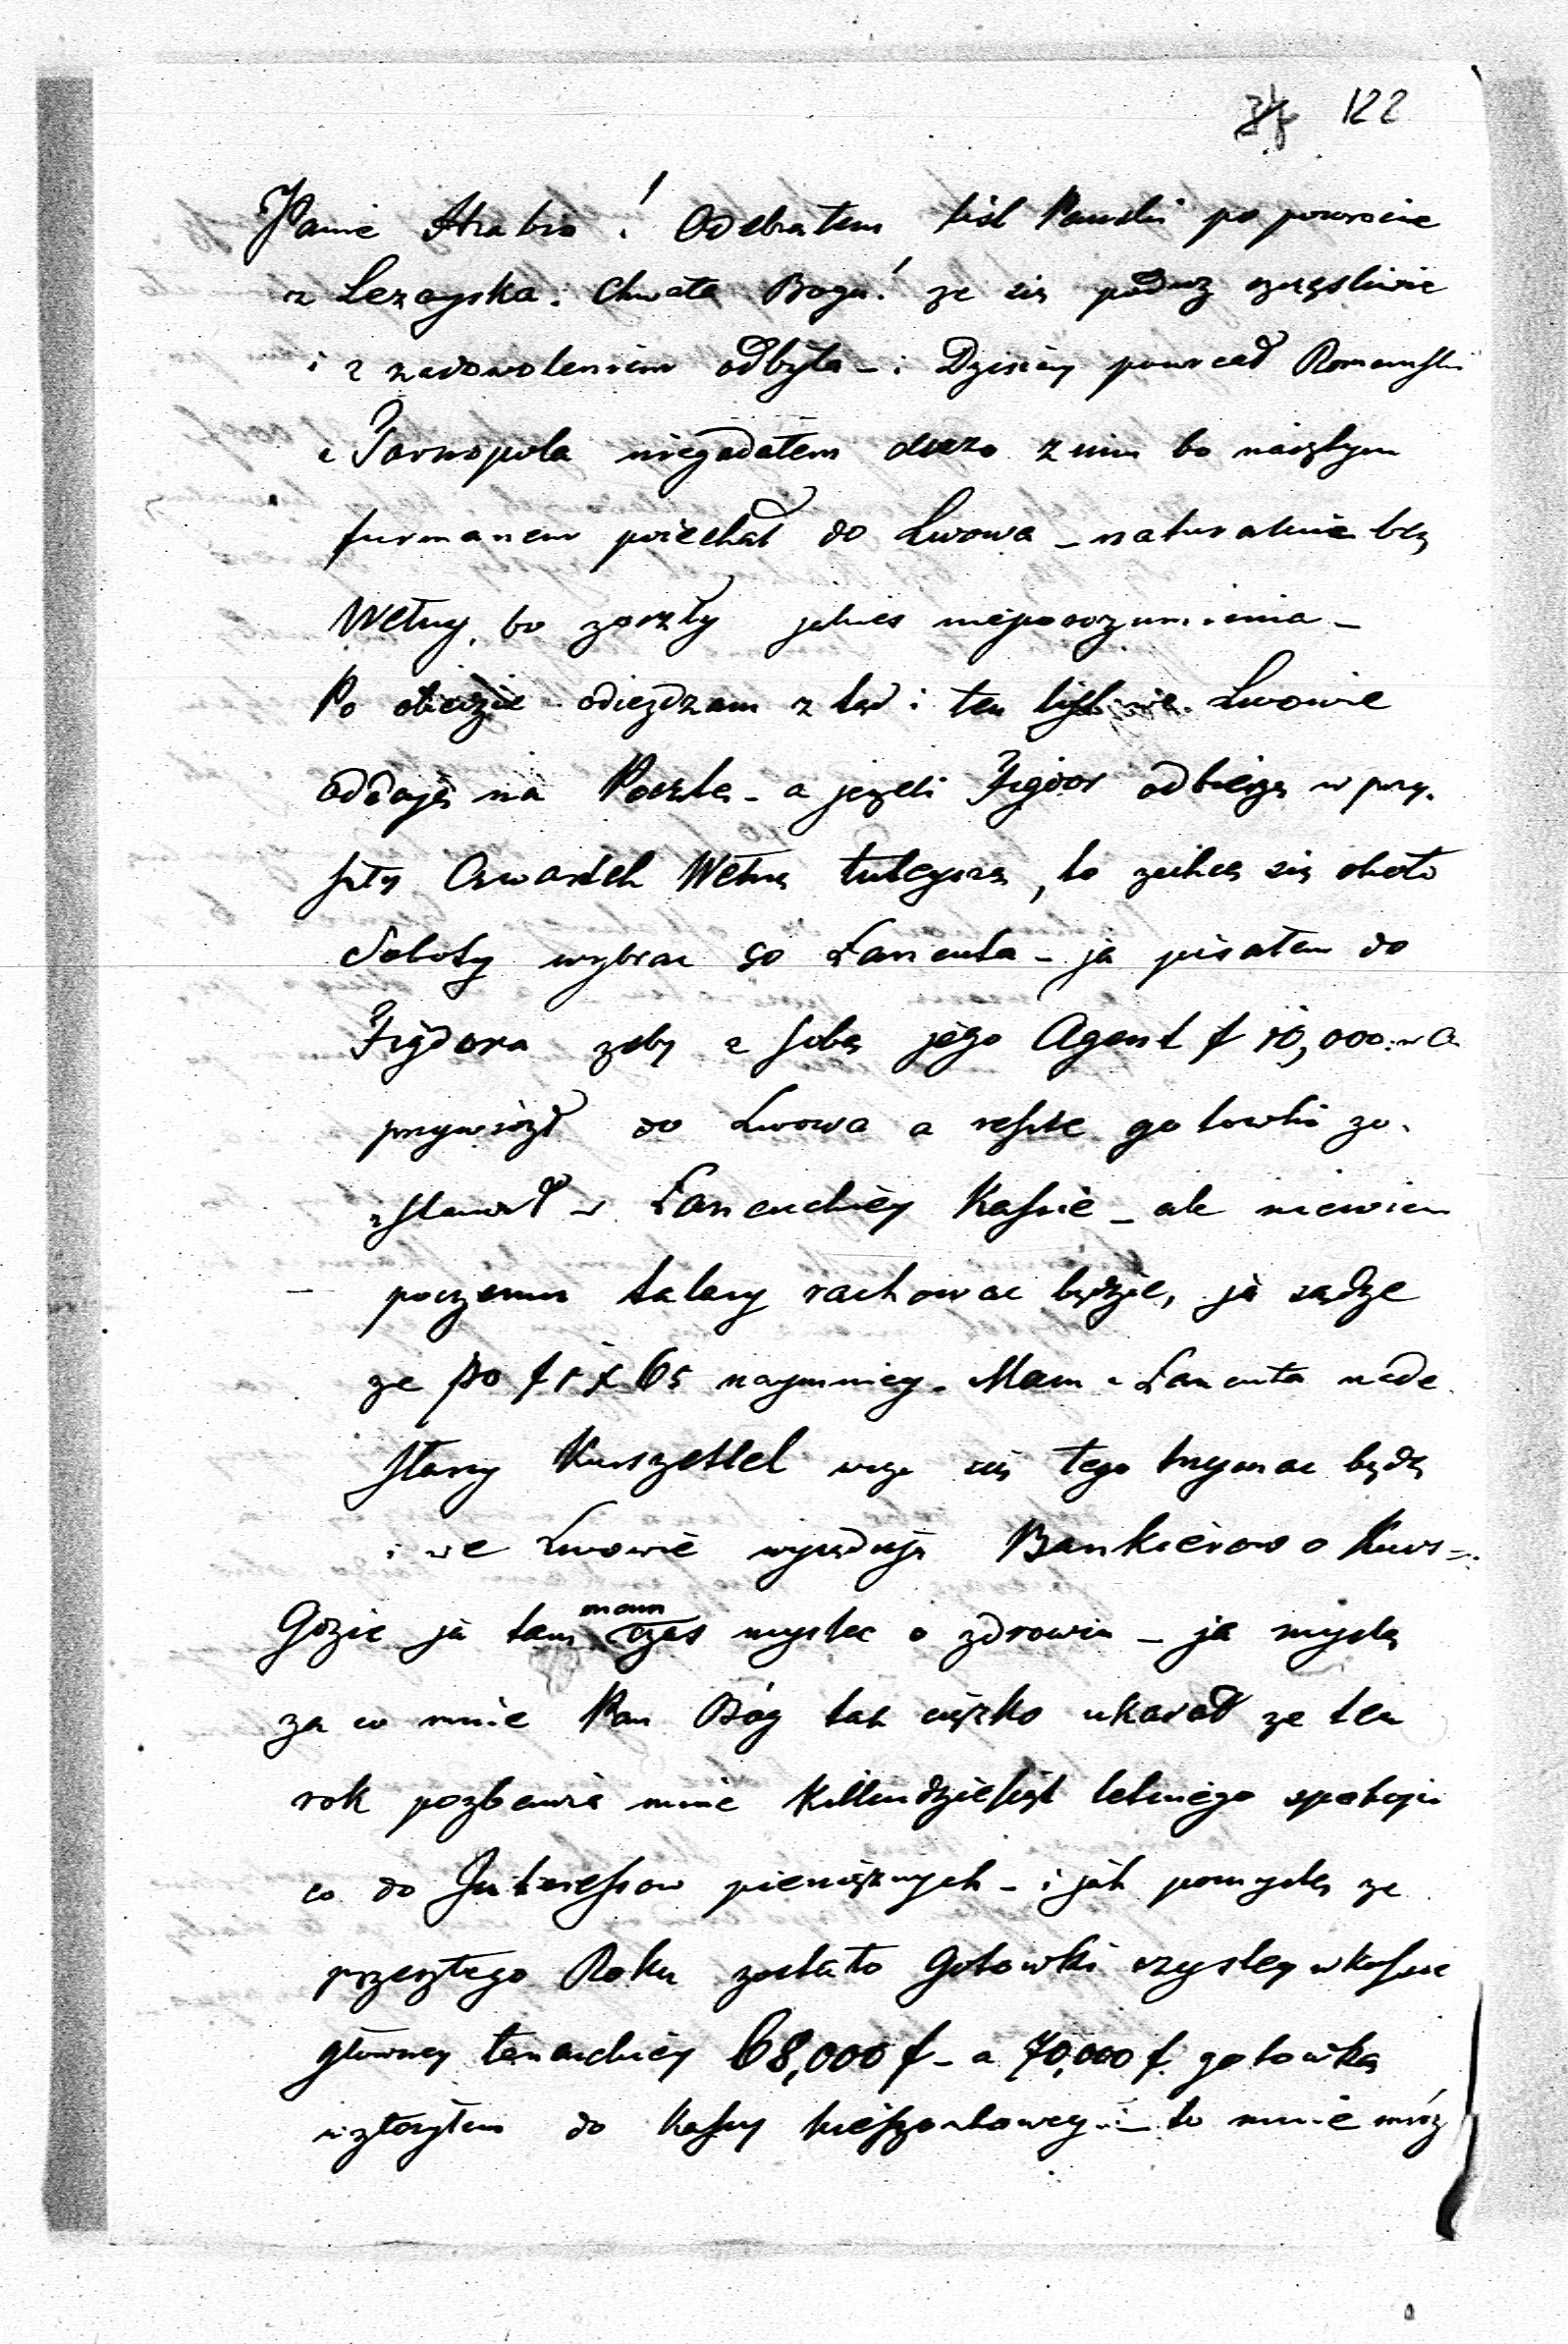 122
Panie Hrabio! Odebrałem list Panski po powrocie
z Lezayska. Chwała Bogu! ze się podroz szczęsliwie
i z zadowoleniem odbyła - Dzisiey powrcał Romanski
z Tarnopola niegadałem duzo z nim bo naiętym
furmanem poiechał do Lwowa - naturalnie bez
Wełny, bo zaszły jakies nieporozumienia -
Po obiedzie odiezdzam z tąd i ten list we Lwowie
oddaję na Pocztę - a jezeli Figdor odbierze w przy.
szły Czwartek Wełnę tuteyszą, to zechce się około
Soboty wybrac do Łancuta - ja pisałem do
Figdora zeby z sobą jego Agent f 10,000 w a
przywiozł do Lwowa a resztę gotowki zo.
stawił w Łancuckiey Kassie - ale niewiem
poczemu talary rachowac będzie, ja sądzę
ze po f 1 x 65 naymniey. Mam z Łancuta nade
słany Kurszettel więc się tego trzymac będę
i we Lwowie wypytuję Bankierow o Kurs -
Gdzie ja tam mam czas myslec o zdrowiu - ja myslę
za co mnie Pan Bóg tak cięzko ukarał ze ten
rok pozbawia mnie Kilkudziesiąt letniego spokoju
co do Interessow pienięznych - i jak pomyslę ze
przeszłego Roku zostało Gotowki czystey w kassie
głowney Łancuckiey 68,000 f - a 70,000 f. gotowką
włozyłem do Kassy kieszonkowey - to mnie mróz